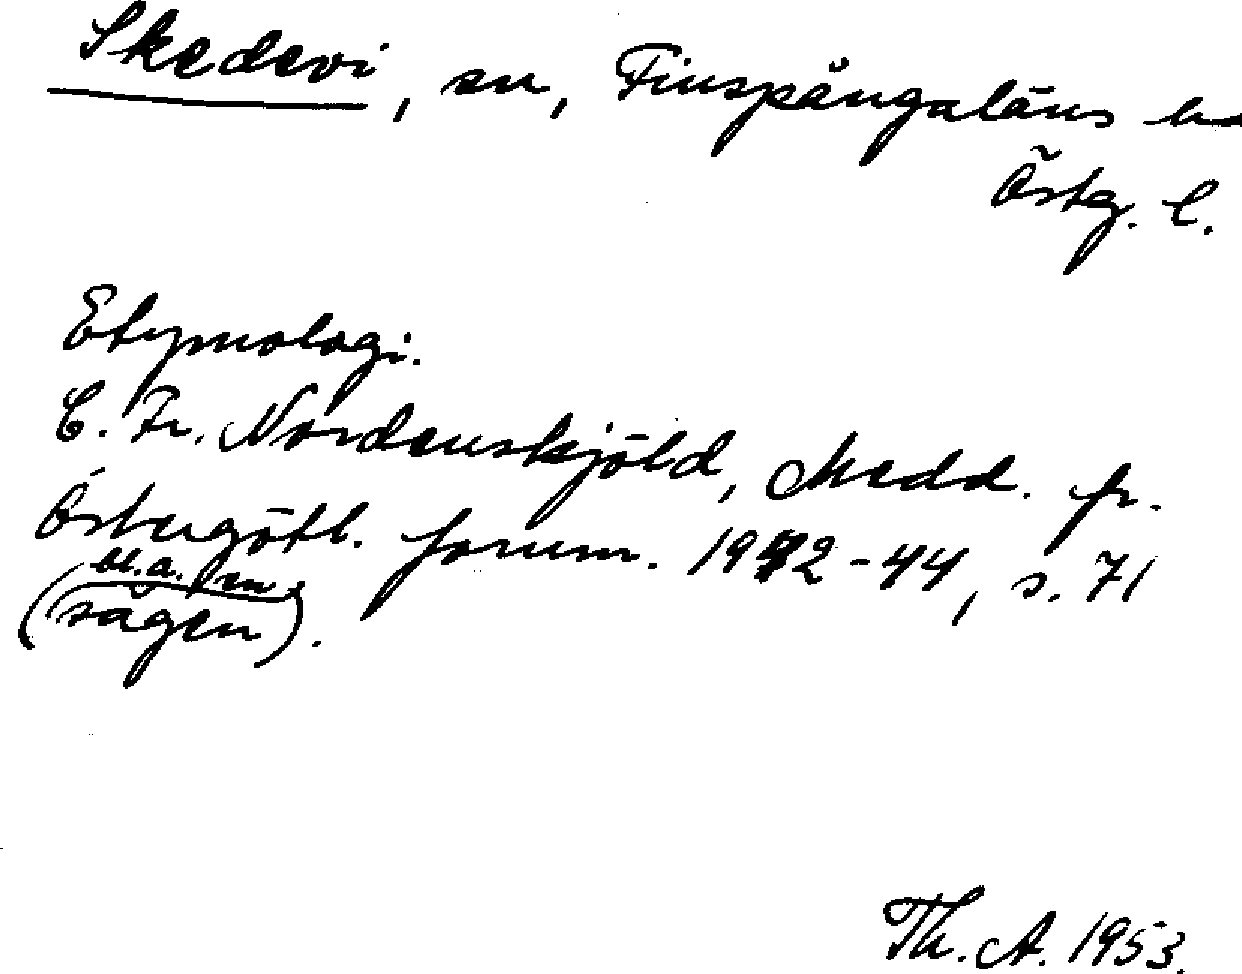 Skedevi, sn, Finspångaläns hd
Östg. l.
Etymologi.
C. Fr. Nordenskjöld, Medd. fr.
Östergötl. fornm. 1942-44, s. 71
(bl.a.
sägen).
Th. A. 1953.